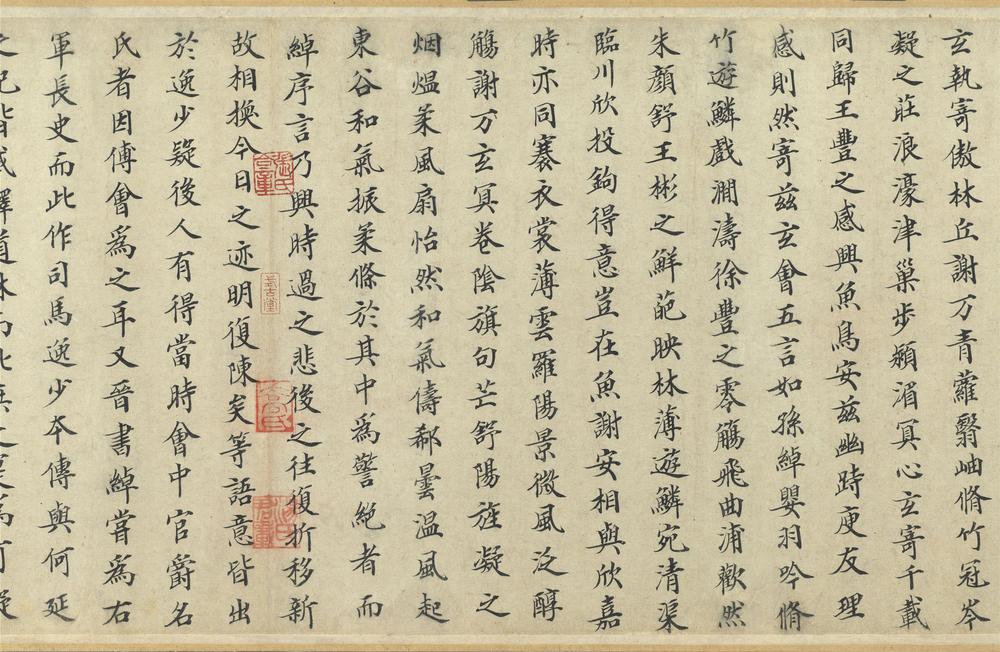 玄執寄傲林丘謝万青蘿翳岫脩竹冠岑
凝之莊浪濠津巢步潁湄冥心玄寄千載
同歸王豐之感興魚鳥安茲幽畤庾友理
感則然寄茲玄會五言如孫綽嬰羽吟脩
竹遊鱗戲澗濤徐豐之零觴飛曲浦歡然
朱顏舒王彬之鮮葩映林薄遊鱗宛清渠
臨川欣投鉤得意豈在魚謝安相與欣嘉
時亦同褰衣裳薄雲羅陽景微風泛醇
觴謝万玄冥卷陰旗句芒舒陽旌凝之
烟熅柔風扇怡然和氣儔郗曇温風起
東谷和氣振柔條於其中為警絶者而
綽序言乃興時過之悲後之往復折移新
故相換今日之迹明復陳矣等語意皆出
於逸少疑後人有得當時會中官爵名
氏者因傅會為之耳又晉書綽嘗為右
軍長史而此作司馬逸少本傳與何延